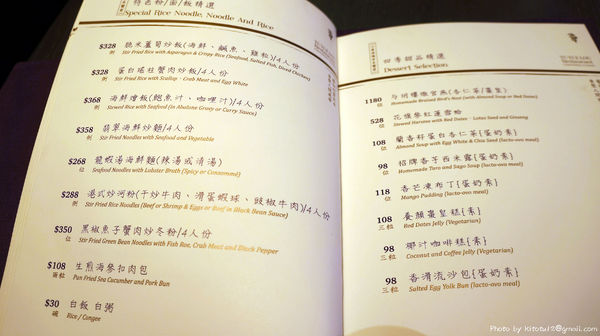 特色粉/面/飯精選
Special Rice Noodle, Noodle And Rice
$328 脆米蘆筍炒飯(海鮮、鹹魚、雞粒)/4人份
例 Stir Fried Rice with Asparagus & Crispy Rice (Seafood, Salted Fish, Diced Chicken)
$328 蛋白瑤柱蟹肉炒飯/4人份
例 Stir Fried Rice with Scallop、Crab Meat and Egg White
$368 海鮮燴飯(鮑魚汁、咖哩汁)/4人份
例 Stewed Rice with Seafood (in Abalone Gravy or Curry Sauce)
$358 翡翠海鮮炒麵/4人份
例 Stir Fried Noodles with Seafood and Vegetable
$268 龍蝦湯海鮮麵(辣湯或清湯)
位 Seafood Noodles with Lobster Broth (Spicy or Consommé)
$288 港式炒河粉(干炒牛肉、滑蛋蝦球、豉椒牛肉)/4人份
例 Stir Fried Rice Noodles (Beef or Shrimp & Eggs or Beef in Black Bean Sauce)
$350 黑椒魚子蟹肉炒冬粉/4人份
位 Stir Fried Green Bean Noodles with Fish Roe, Crab Meat and Black Pepper
$108 生煎海參扣肉包
兩粒 Pan Fried Sea Cucumber and Pork Bun
$30 白飯 白粥
碗 Rice / Congee
四季甜品精選
Dessert Selection
1180
位 Homemade Braised Bird's Nest (with Almond Soup or Red Dates)
528 花旗參紅蓮雪蛤
位 Stewed Harsmar with Red Dates、Lotus Seed and Ginseng
108 蘭香籽蛋白杏仁茶{蛋奶素}
位 Almond Soup with Egg White & Chia Seed (lacto-ovo meal)
98 招牌香芋西米露{蛋奶素}
位 Homemade Taro and Sago Soup (lacto-ovo meal)
118 香芒凍布丁{蛋奶素}
位 Mango Pudding (lacto-ovo meal)
108 養顏棗皇糕{素}
三粒 Red Dates Jelly (Vegetarian)
98 椰汁咖啡糕{素}
三粒 Coconut and Coffee Jelly (Vegetarian)
98 香滑流沙包{蛋奶素}
三粒 Salted Egg Yolk Bun (lacto-ovo meal)
Photo by Kitotu12@gmail.com